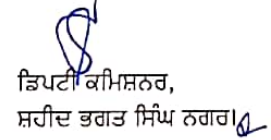 ਡਿਪਟੀ ਕਮਿਸ਼ਨਰ,
ਸ਼ਹੀਦ ਭਗਤ ਸਿੰਘ ਨਗਰ।